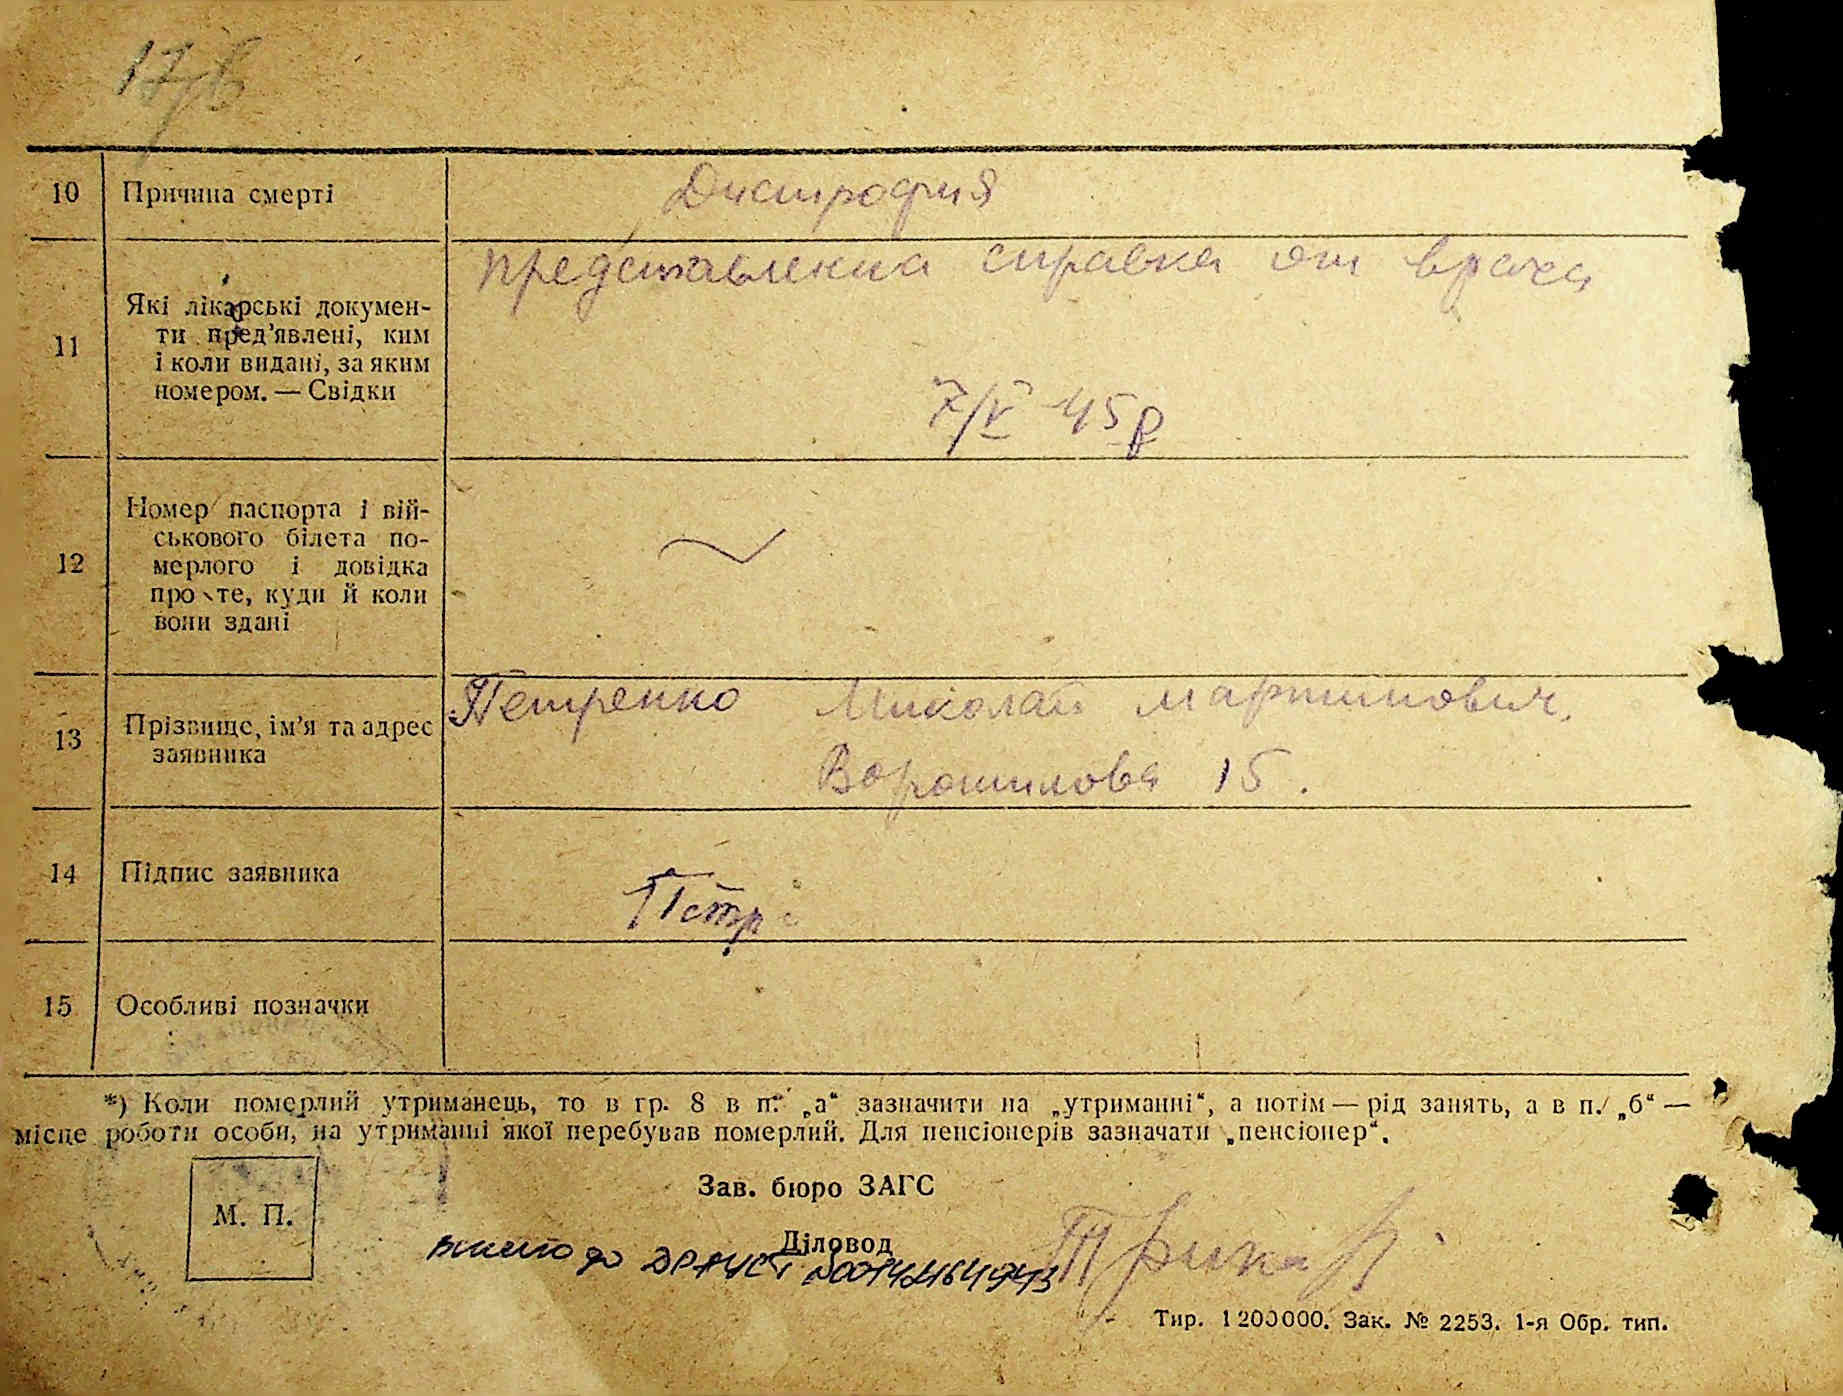 10 Причина смерті Дистрофия
11 Які лікарські докумен-
ти пред'явлені, ким
і коли видані, за яким
номером. — Свідки
представленна справка от врача
7/V 45р
12 Номер паспорта і вій-
ськового білета по-
мерлого і довідка
про те, куди й коли
вони здані
13 Прізвище, ім'я та адрес
заявника
Петренко Миколай Мартинович.
Ворошилова 15.
14 Підпис заявника Петр
15 Особливі позначки
*) Коли померлий утриманець, то в гр. 8 в п. „а“ зазначити на „утриманні“, а потім — рід занять, а в п. „б“ —
місце роботи особи, на утриманні якої перебував померлий. Для пенсіонерів зазначати „пенсіонер“.
М. П.
Зав. бюро ЗАГС
Діловод
внесено до ДРАЦСГ
Тир. 1200000. Зак. № 2253. 1-я Обр. тип.